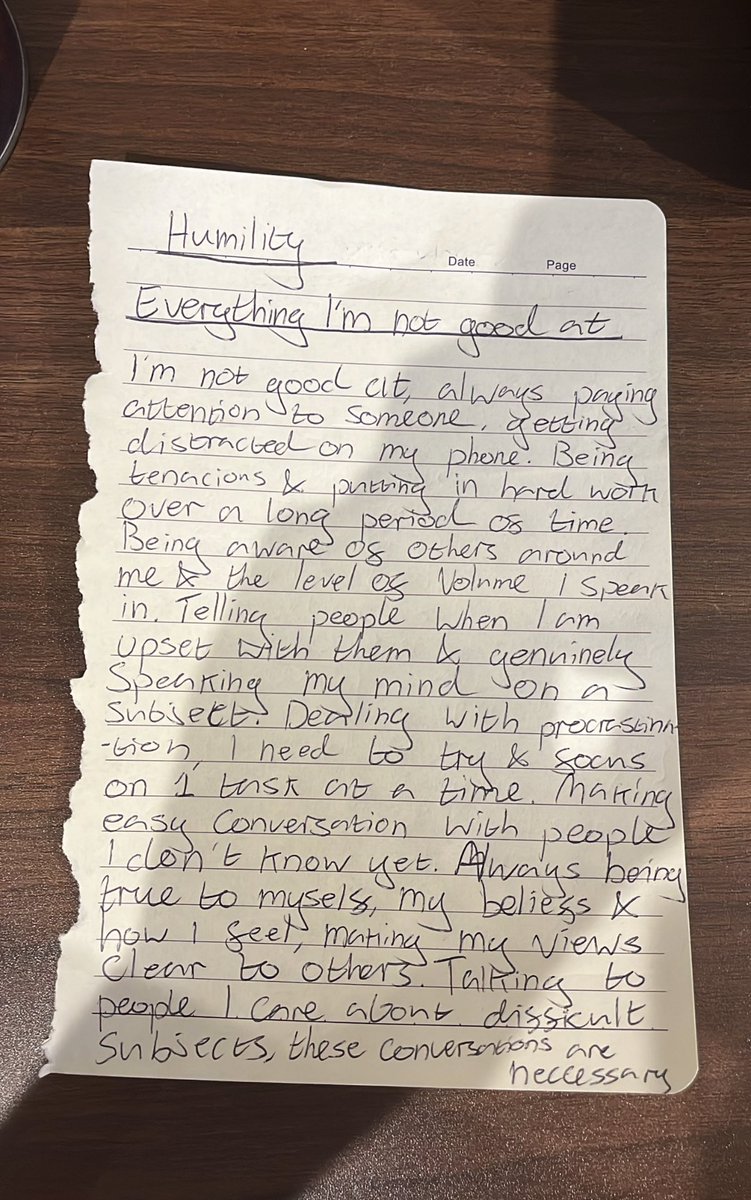 Humility
Date Page
Everything I'm not good at
I'm not good at, always paying
attention to someone, getting
distracted on my phone. Being
tenacious & putting in hard work
over a long period of time.
Being aware of others around
me & the level of Volume I speak
in. Telling people when I am
upset with them & genuinely
Speaking my mind on a
Subject. Dealing with procrastina
-tion, I need to try & focus
on 1 task at a time. Making
easy Conversation with people
I don't know yet. Always being
true to myself, my beliefs &
how I feel, making my views
Clear to others. Talking to
people I care about difficult
Subjects, these conversations are
neccessary